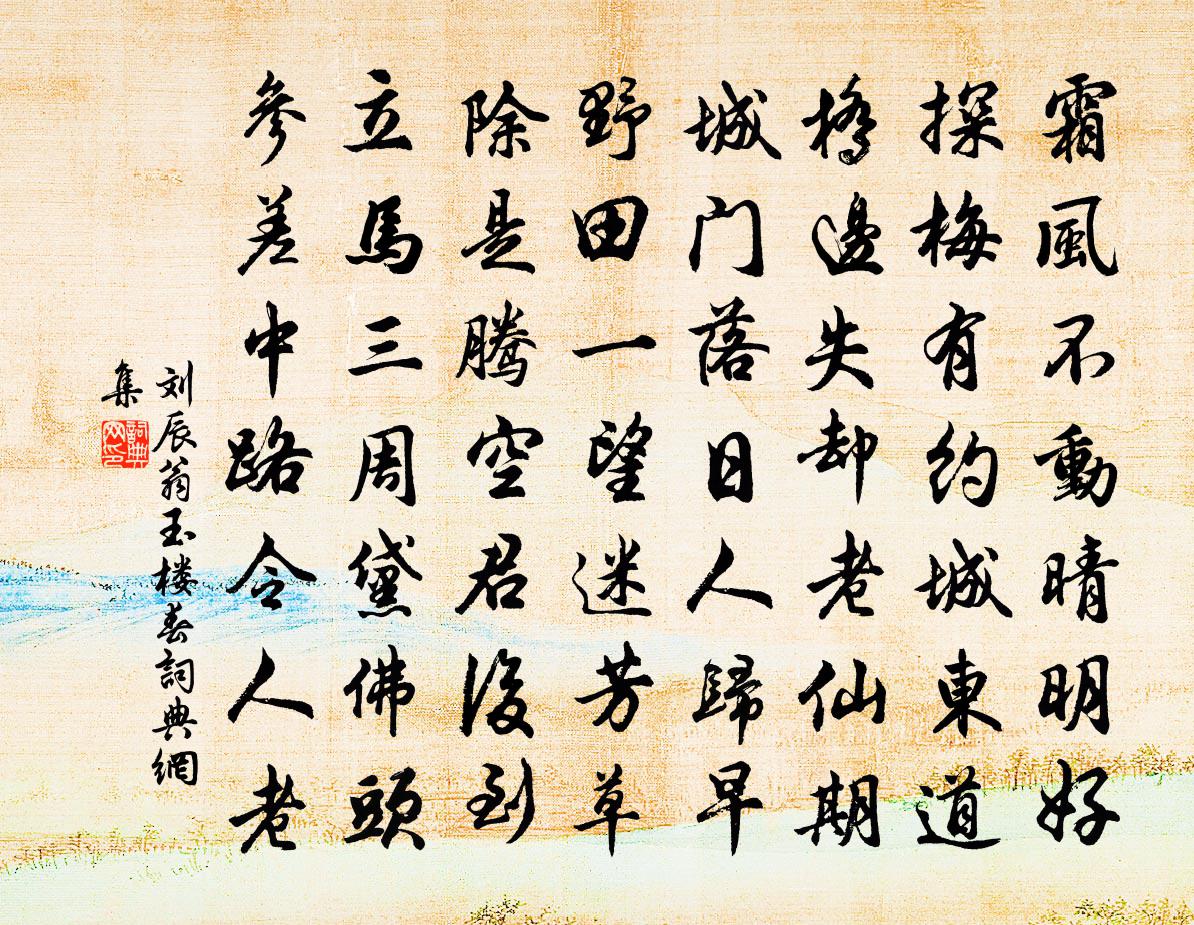 霜風不動晴明好
探梅有約城東道
橋邊失却老仙期
城门落日人歸早
野田一望迷芳草
除是騰空君後到
立馬三周黛佛頭
參差中路令人老
刘辰翁玉楼春詞典網
集
詞典网印